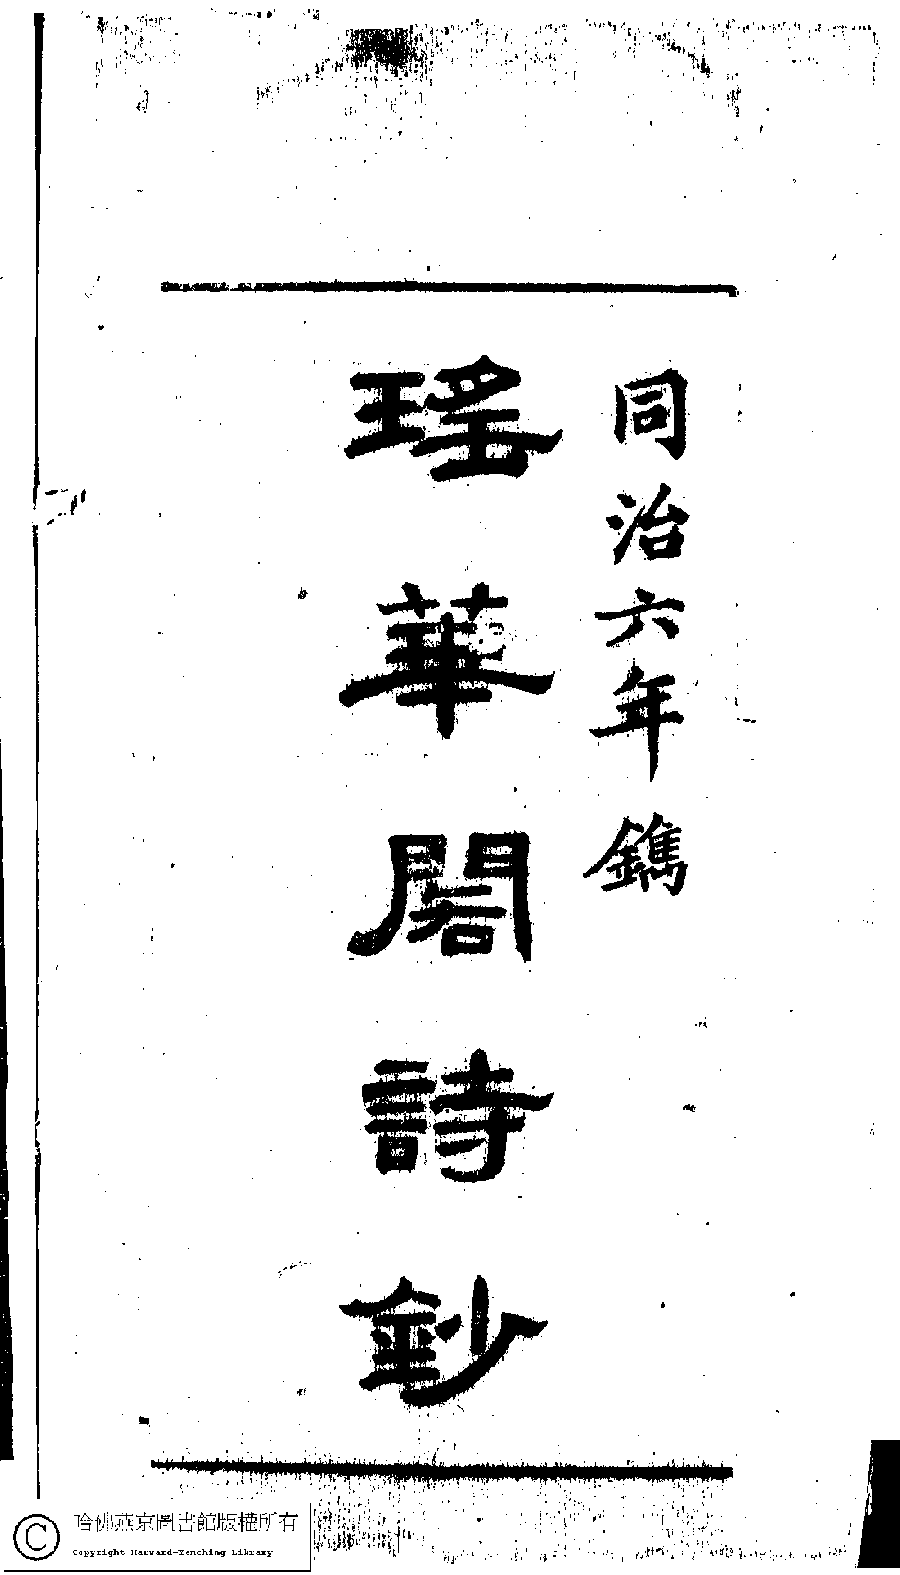 同治六年鐫
瑤華閣詩鈔
哈佛燕京圖書館版權所有
Copyright Harvard-Yenching Library